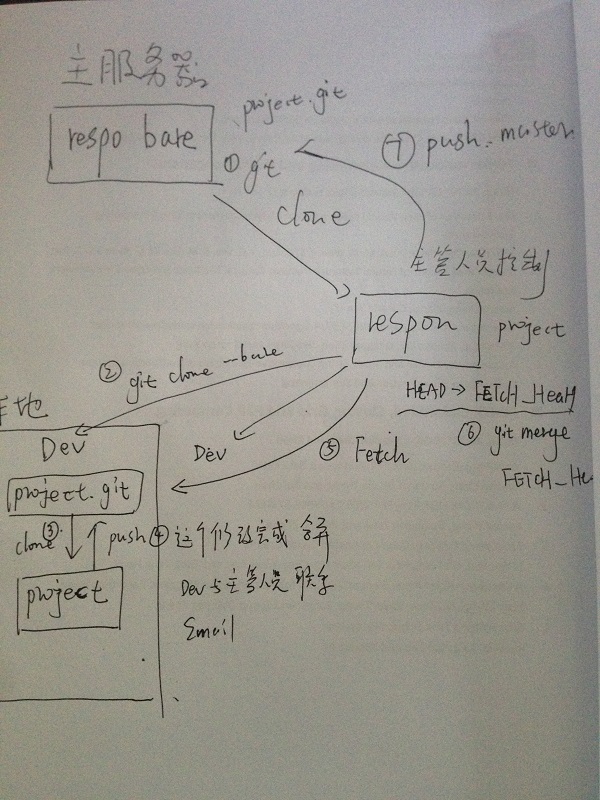 主服务器
project.git
respo bare
① git
clone
⑦ push.master
主管人员控制
respon
project
② git clone --bare
HEAD → FETCH_HeaH
本地
Dev
Dev
⑤ Fetch
⑥ git merge
FETCH_He
project.git
clone ③
push ④ 这个修改完成 合并
project
Dev与主管人员 联系
Email